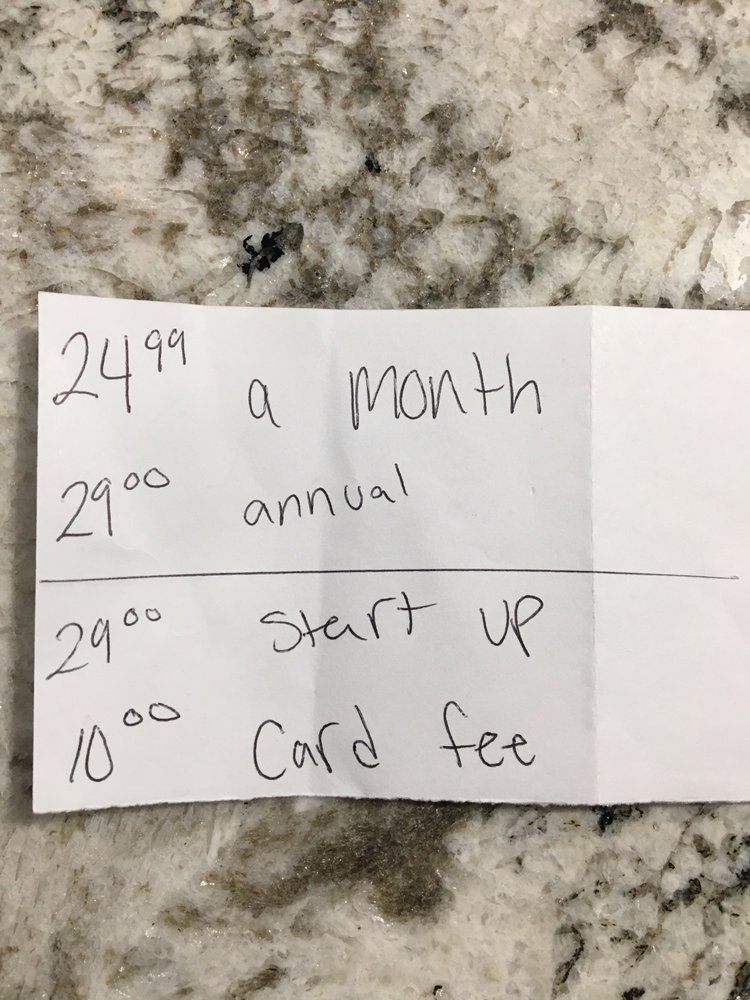 24⁹⁹ a month
29⁰⁰ annual
29⁰⁰ Start up
10⁰⁰ Card fee